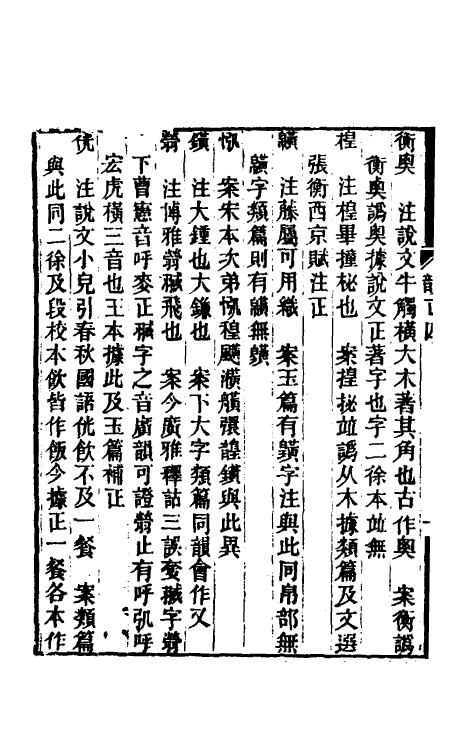 衡奧　注說文牛觸橫大木著其角也古作奧　案衡譌
衡奧譌與據說文正著字也字二徐本竝無
楻　注楻畢撞柲也　案揘抋竝譌从木據類篇及文選
張衡西京賦注正
　注藤屬可用織　案玉篇有䉔字注與此同帛部無
字類篇則有無
　案宋本次弟䅣䬖彉䪄鐄與此異
鐄　注大鍾也大鎌也　案下大字類篇同韻會作又
　注博雅䎕飛也　案今廣雅釋詁三誤䎕字
下曹憲音呼麥正䎕字之音廣韻可證止有呼泓呼
宏虎橫三音也王本據此及玉篇補正
侊　注說文小皃引春秋國語侊飲不及一餐　案類篇
與此同二徐及段校本飲皆作飯今據正一餐各本作
韻正四
一